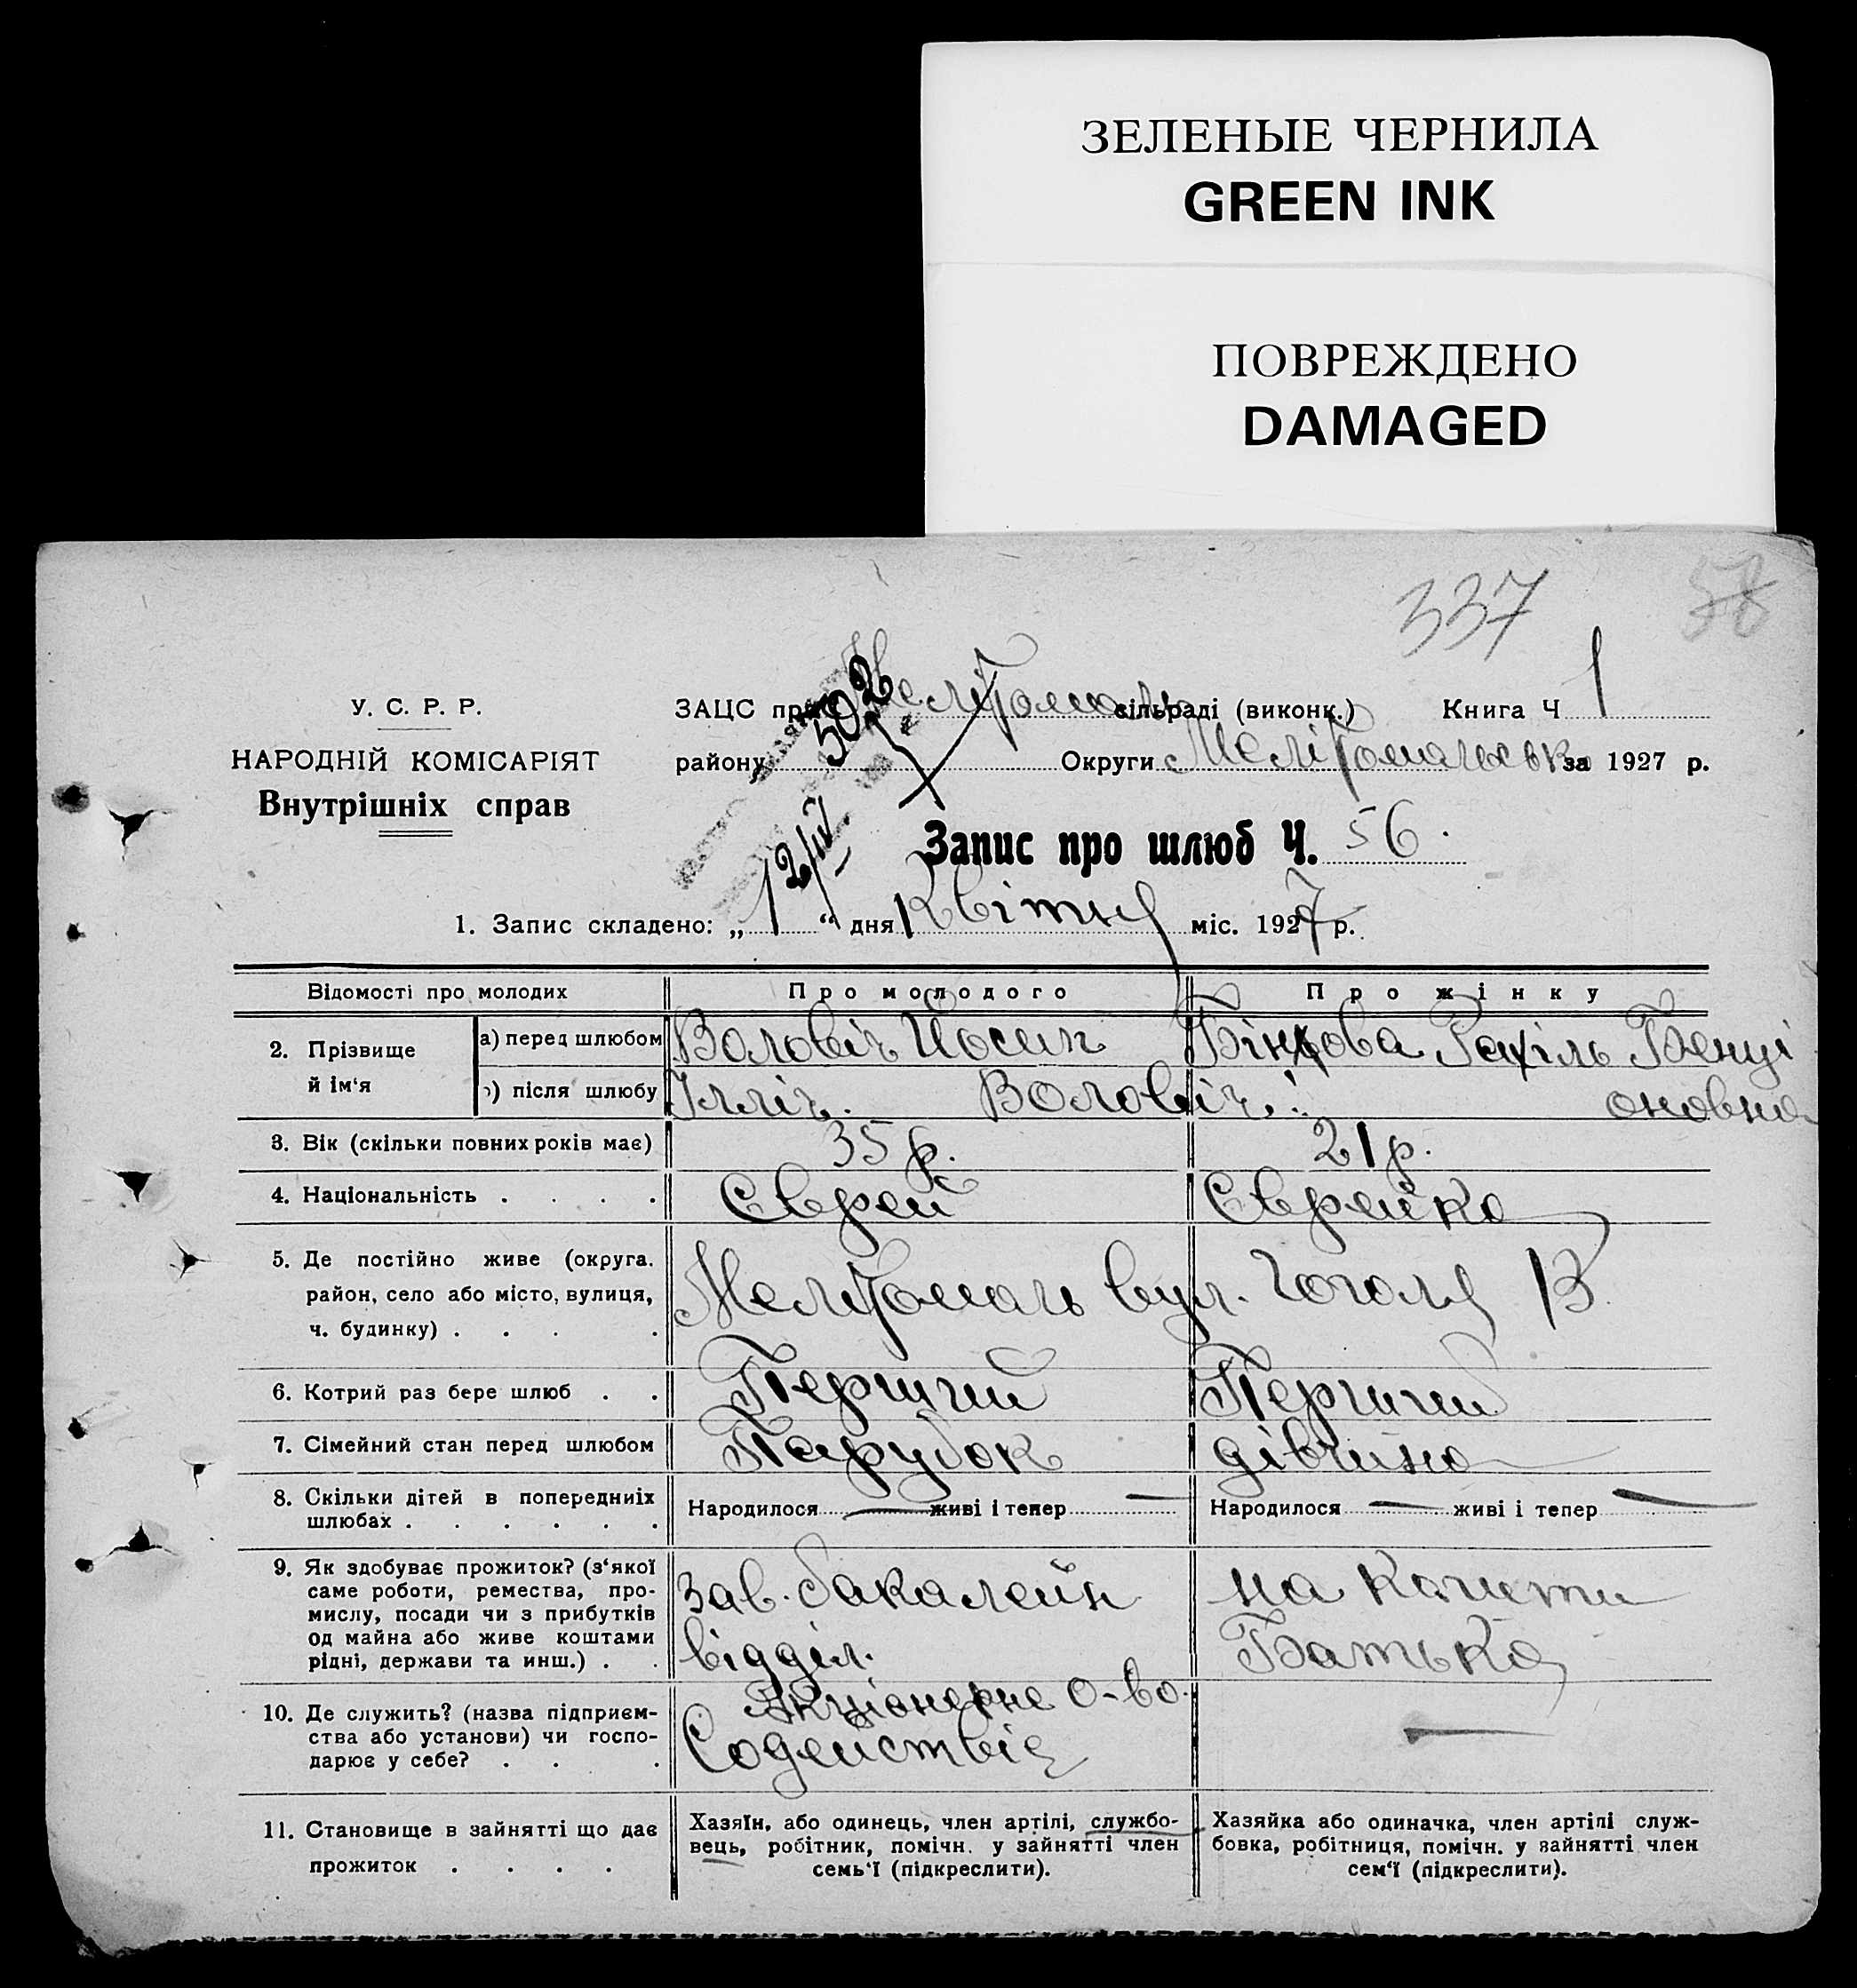 ЗЕЛЕНЫЕ ЧЕРНИЛА
GREEN INK
ПОВРЕЖДЕНО
DAMAGED
337 58
У. С. Р. Р.
НАРОДНІЙ КОМІСАРІЯТ
Внутрішніх справ
ЗАЦС при сільраді (виконк.) Книга Ч 1
502
району Округи Мелітопольськ за 1927 р.
12/IV
Запис про шлюб Ч. 56.
1. Запис складено: „ 1 “ дня Квітня міс. 1927 р.
Відомості про молодих Про молодого Про жінку
2. Прізвище й ім‘я
а) перед шлюбом Воловіч Йосип Рахіль Бенці
) після шлюбу Ілліч. Воловіч. оновна
3. Вік (скільки повних років має) 35 р. 21 р.
4. Національність . . . . Єврей Єврейка
5. Де постійно живе (округа.
район, село або місто, вулиця,
ч. будинку) . . . . Мелітополь вул. Гоголя 13
6. Котрий раз бере шлюб . . Перший Перший
7. Сімейний стан перед шлюбом Парубок дівчина
8. Скільки дітей в попередниіх
шлюбах . . . . . . Народилося — живі і тепер — Народилося — живі і тепер —
9. Як здобуває прожиток? (з‘якої
саме роботи, ремества, про-
мислу, посади чи з прибутків
од майна або живе коштами
рідні, держави та инш.) . .
зав. бакалейн
відділ.
на кошти
Батька
10. Де служить? (назва підприєм-
ства або установи) чи госпо-
дарює у себе? . . .
Акціонерне О-во.
Содействія
—
11. Становище в зайнятті що дає
прожиток . . . .
Хазяїн, або одинець, член артілі, службо-
вець, робітник, помічн. у зайнятті член
семь‘ї (підкреслити).
Хазяйка або одиначка, член артілі служ-
бовка, робітниця, помічн. у зайнятті член
сем‘ї (підкреслити).